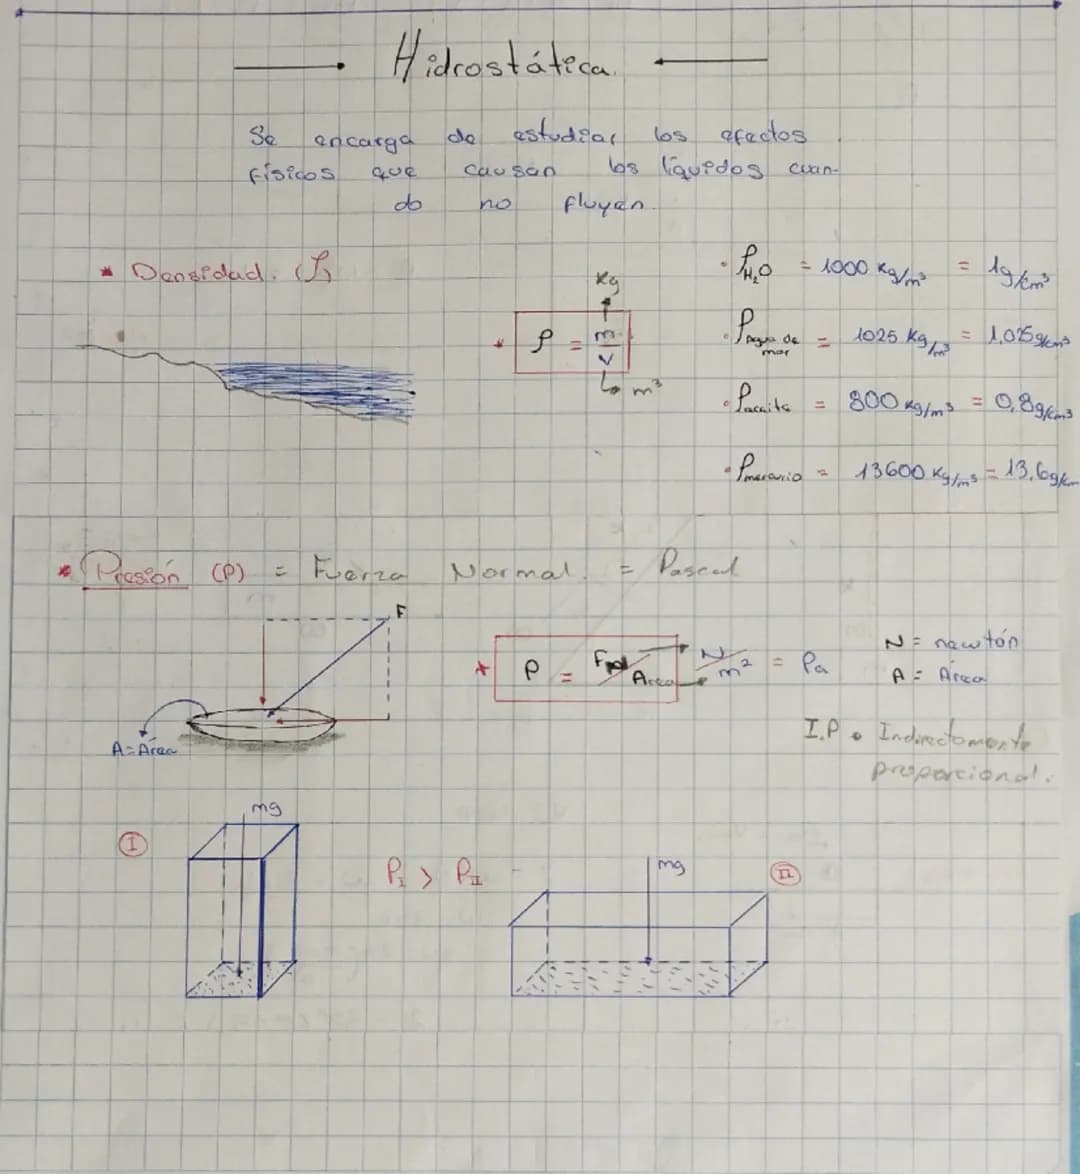 Hidrostática.
Se encarga de estudiar los efectos
físicos que causan los líquidos cuan-
do no fluyen.
* Densidad. (ρ)
Kg
* ρ = m/v
m³
• ρH₂O = 1000 Kg/m³ = 1g/cm³
• ρagua de mar = 1025 Kg/m³ = 1,025g/cm³
• ρaceite = 800 Kg/m³ = 0,8g/cm³
• ρmercurio = 13600 Kg/m³ = 13,6g/cm
* Presión (P) = Fuerza Normal. = Pascal
F
A=Área
* P = F/Área N/m² = Pa
N = newtón
A = Área
I.P • Indirectamente
proporcional.
I
mg
P_I > P_II
mg
II